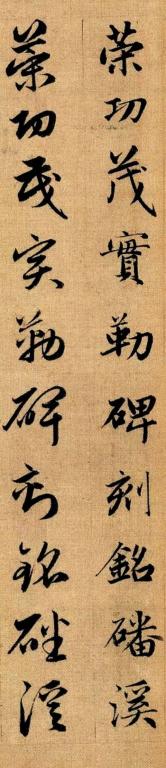 策功茂實勒碑刻銘磻溪
策功茂實勒碑刻銘磻溪